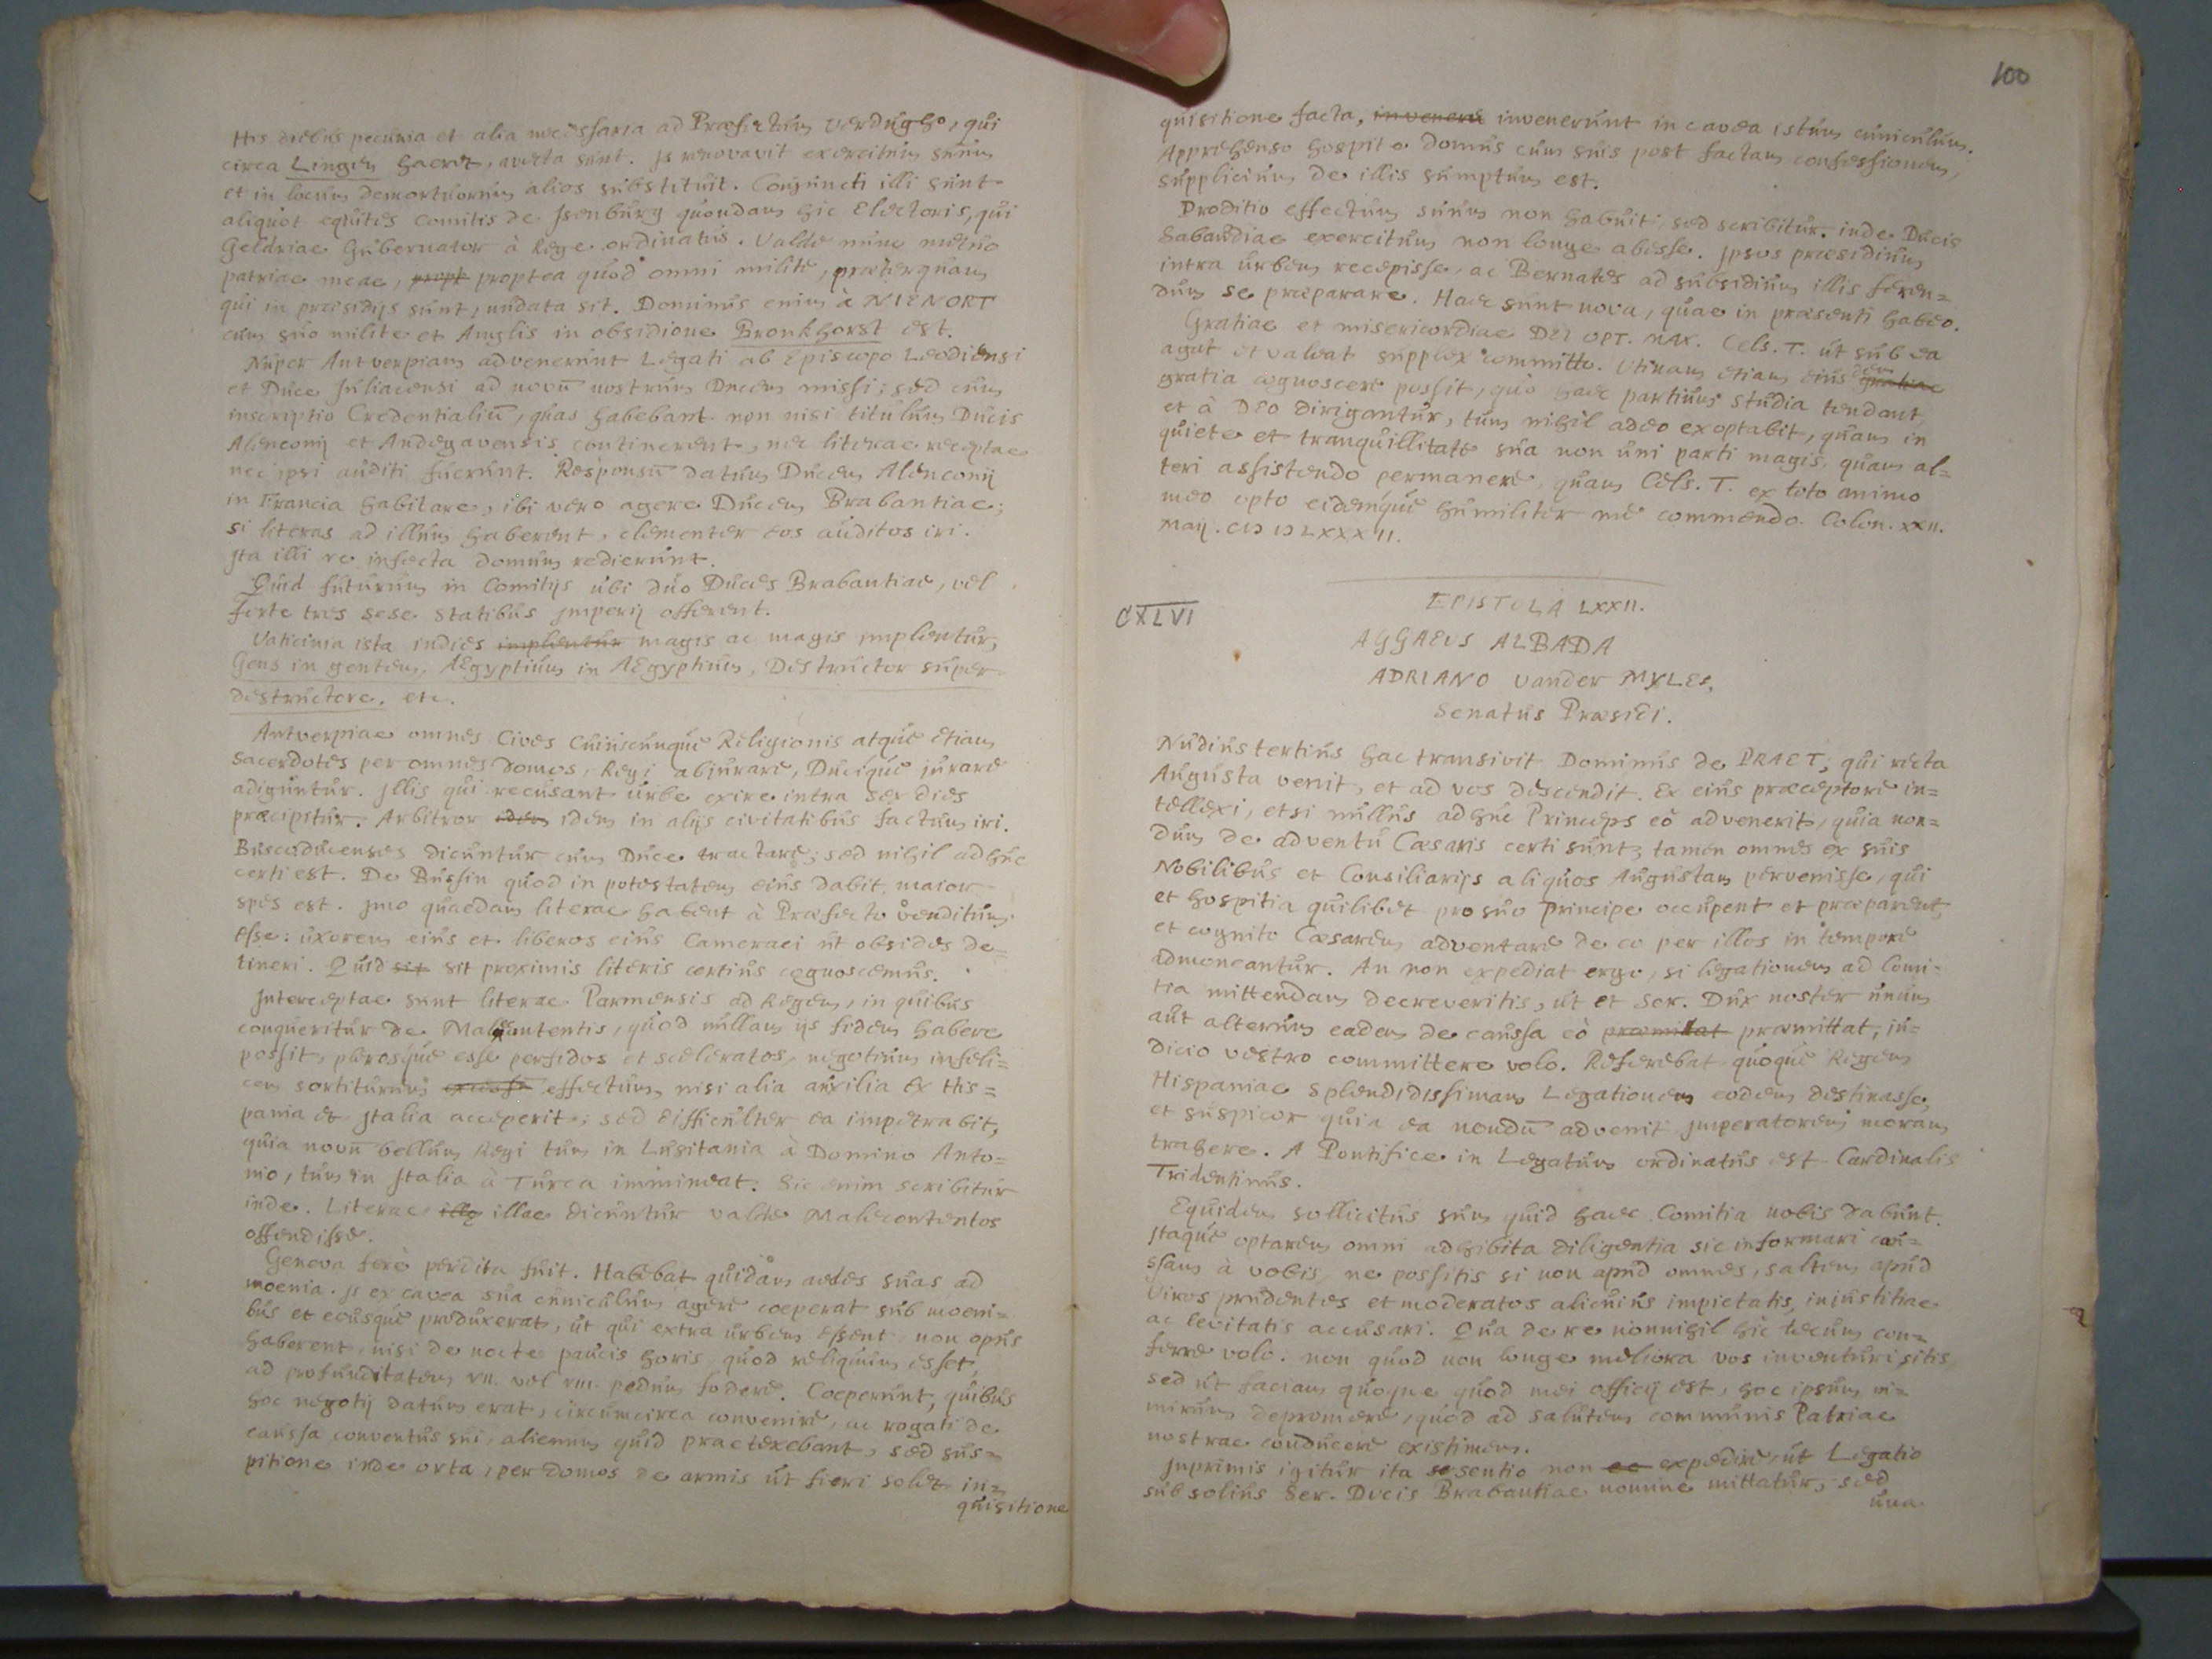 His diebus pecunia et alia necessaria ad Præfectum Verdugho, qui
circa Lingen haeret, avecta sunt. Is renovavit exercitum suum
et in locum demortuorum alios substituit. Conjuncti illi sunt
aliquot equites Comitis de Isenburg quondam hic Electoris, qui
Geldriae Gubernator à Rege ordinatus. Valde nunc metuo
patriae meae, propt proptea quod omni milite, præterquam
qui in præsidijs sunt, nudata sit. Dominus enim à NIENORT
cum suo milite et Anglis in obsidione Bronkhorst est.
Nuper Antverpiam advenerunt Legati ab Episcopo Leodiensi
et Duce Juliacensi ad novū nostrum Ducem missi; sed cum
inscriptio Credentialiū, quas habebant non nisi titulum Ducis
Alenconij et Andegavensis continerent, nec literae receptae
nec ipsi auditi fuerunt. Responsū datum Ducem Alenconij
in Francia habitare, ibi vero agere Ducem Brabantiae;
si literas ad illum haberent, clementer eos auditos iri.
Ita illi re infecta domum redierunt.
Quid futurum in Comitijs ubi duo Duces Brabantiae, vel
forte tres sese statibus Imperij offerent.
Vaticinia ista indies implentur magis ac magis implentur,
Gens in gentem, AEgyptium in AEgyptium, Destructor super
destructore. etc.
Antverpiae omnes Cives Cuiuscunque Religionis atque etiam
Sacerdotes per omnes domos, Regi abjurare, Ducique jurare
adiguntur. Illis qui recusant urbe exire intra sex dies
præcipitur. Arbitror idem idem in alijs civitatibus factum iri.
Buscoducenses dicuntur cum Duce tractare; sed nihil adhuc
certi est. De Bussin quod in potestatem eius dabit, maior
spes est. Imo quaedam literae habent à Præfecto venditum
esse: uxorem eius et liberos eius Cameraci ut obsides de=
tineri. Quid sit sit proximis literis certius cognoscemus.
Interceptae sunt literae Parmensis ad Regem, in quibus
conqueritur de Malcontentis, quod nullam ijs fidem habere
possit, plerosque esse perfidos et sceleratos, negotium infeli=
cem sortiturum effectum, nisi alia auxilia ex His=
pania et Italia acceperit; sed difficulter ea impetrabit,
quia novū bellum Regi tum in Lusitania à Domino Anto=
nio, tum in Italia à Turca immineat. Sic enim scribitur
inde. Literae illę illae dicuntur valde Malecontentos
offendisse.
Geneva ferè perdita fuit. Habebat quidam aedes suas ad
moenia. Is ex cavea sua cuniculum agere coeperat sub moeni=
bus et eousque produxerat, ut qui extra urbem essent non opus
haberent, nisi de nocte paucis horis quod reliquum esset,
ad profunditatem VII. vel VIII. pedum fodere. Coeperunt, quibus
hoc negotij datum erat, circumcirca convenire, ac rogati de
caussa conventus sui, alienum quid praetexebant, sed sus=
pitione inde orta, per domos de armis ut fieri solet in=
quisitione
100
quisitione facta, inveneru invenerunt in cavea istum cuniculum.
Apprehenso hospite domus cum suis post factam confessionem,
supplicium de illis sumptum est.
Proditio effectum suum non habuit, sed scribitur inde Ducis
Sabaudiae exercitum non longe abesse. Ipsos præsidium
intra urbem recepisse, ac Bernates ad subsidium illis feren=
dum se præparare. Haec sunt nova, quae in præsenti habeo.
Gratiae et misericordiae DEI OPT. MAX. Cels. T. ut sub ea
agat et valeat supplex committo. Utinam etiam eius dem gratiae
gratia cognoscere possit, quò haec partium studia tendant
et à DEO dirigantur, tum nihil adeo exoptabit, quam in
quiete et tranquillitate sua non uni parti magis, quam al=
teri assistendo permanere, quam Cels. T. ex toto animo
meo opto eidemque humiliter me commendo. Colon. XXII.
Maij. CIↃ IↃ LXXXII.
CXLVI
EPISTOLA LXXII.
AGGAEUS ALBADA
ADRIANO vander MYLES,
Senatus Præsidi.
Nudiustertius hac transivit Dominus de PRAET, qui recta
Augusta venit, et ad vos descendit. Ex eius præceptore in=
tellexi, etsi nullus adhuc Princeps eò advenerit, quia non=
dum de adventu Cæsaris certi sunt, tamen omnes ex suis
Nobilibus et Consiliarijs aliquos Augustam pervenisse, qui
et hospitia quilibet pro suo Principe occupent et præparent,
et cognito Cæsarem adventare de eo per illos in tempore
admoneantur. An non expediat ergo, si legationem ad Comi=
tia mittendam decreveritis, ut et Ser. Dux noster unum
aut alterum eadem de caussa eò præmittat præmittat, iu=
dicio vestro committere volo. Referebat quoque Regem
Hispaniae splendidissimam Legationem eodem destinasse,
et suspicor quia ea nondū advenit Imperatorem moram
trahere. A Pontifice in Legatum ordinatus est Cardinalis
Tridentinus.
Equidem sollicitus sum quid haec Comitia nobis dabunt.
Itaque optarem omni adhibita diligentia sic informari cau=
ssam à vobis, ne possitis si non apud omnes, saltem apud
Viros prudentes et moderatos alicuius impietatis, iniustitiae
ac levitatis accusari. Qua de re nonnihil hîc tecum con=
ferre volo: non quod non longe meliora vos inventuri sitis,
sed ut faciam quoque quod mei officij est, hoc ipsum ni=
mirum depromere, quod ad salutem communis Patriae
nostrae conducere existimem.
Inprimis igitur ita sentio non ex expedire, ut Legatio
sub solius Ser. Ducis Brabantiae nomine mittatur, sed
una